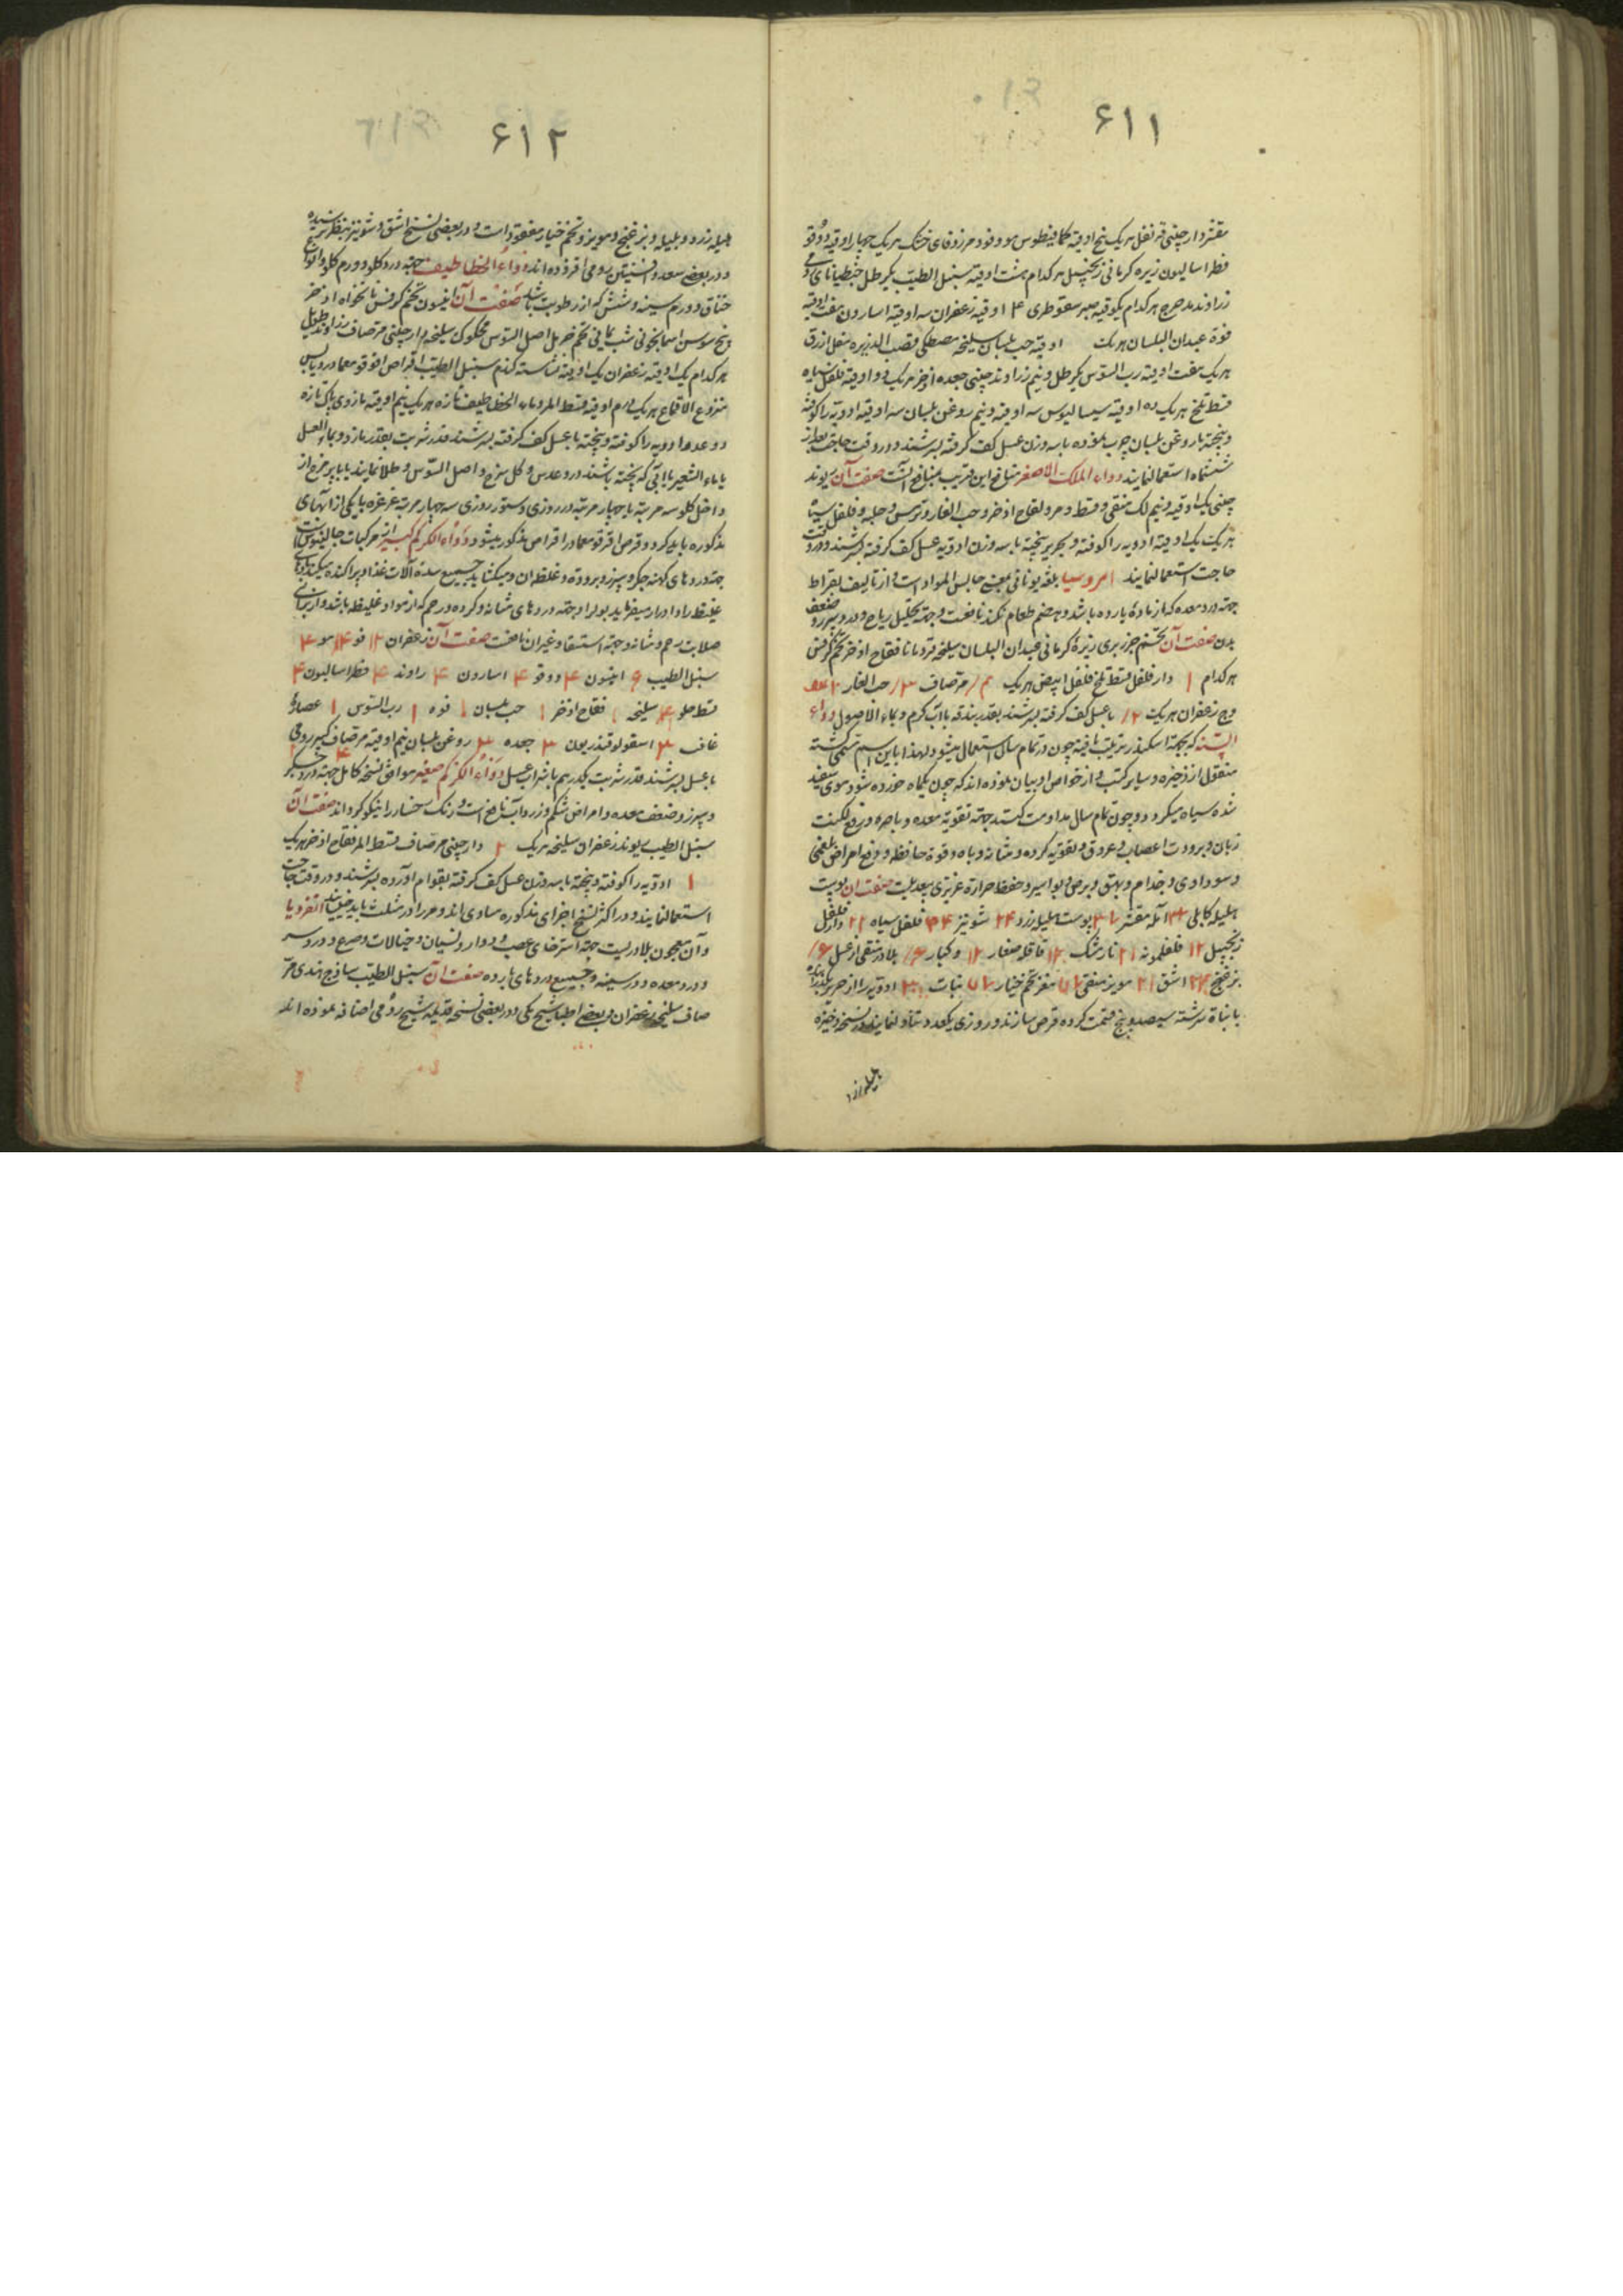 ۶۱۱
مقشر دارچینی قرنفل هریک پنج اوقیه کمافیطوس مو و فود مر زوفای خشک هریک چهار اوقیه دوقو
فطراسالیون زیره کرمانی زنجبیل هرکدام هشت اوقیه سنبل الطیب یکرطل جنطیانای
زراوند مدحرج هرکدام یکوقیه صبر سقوطری ۴ اوقیه زعفران سه اوقیه اسارون هفت اوقیه
فوة عیدان البلسان هریک اوقیه حب بلسان سلیخه مصطکی قصب الذریره مقل ازرق
هریک هفت اوقیه رب السوس یکرطل ونیم زراوند چینی جعده اذخر هریک دو اوقیه فلفل سیاه
قسط تلخ هریک ده اوقیه سیسالیوس سه اوقیه ونیم روغن بلسان سه اوقیه ادویه را کوفته
وبیخته با روغن بلسان چرب نموده با سه وزن عسل کف گرفته بسرشند و در وقت حاجت بعد از
ششماه استعمال نمایند دواء الملک الاصغر منافع این قریب بمنافع آنست صفت آن ریوند
چینی یک اوقیه ونیم لک منقی وقسط ومر وفقاح اذخر وحب الغار وترمس وحلبه وفلفل سیاه
هریک یک اوقیه ادویه را کوفته وبحریر بیخته با سه وزن ادویه عسل کف گرفته بسرشند ودر وقت
حاجت استعمال نمایند امروسیا بلغه یونانی بمعنی حابس المواد است و از تالیف بقراط
جهة درد معده که از مادهٔ بارده باشد وهضم طعام نکند نافعست وجهة تحلیل ریاح ودرد سپرز وضعف
بدن صفت آن تخم جزر بری زیرهٔ کرمانی عیدان البلسان سلیخه قردمانا فقاح اذخر تخم کرفس
هرکدام ۱ دارفلفل قسط تلخ فلفل ابیض هریک مر صاف حب الغار
وج زعفران هریک ۲ با عسل کف گرفته بسرشند بقدر بندقه با آب گرم و بماء الاصول دواء
السنه که بجهة اسکندر ترتیب یافته چون در تمام سال استعمال میشود لهذا باین اسم مسمی گشته
منقول از ذخیره وسایر کتب و از خواص او بیان نموده اند که چون یکماه خورده شود موی سفید
شده سیاه میگردد وچون تمام سال مداومت کنند جهة تقویة معده وباصره ورفع لکنت
زبان وبرودت اعصاب وعروق وتقویة کرده ومثانه وباه وقوة حافظه ورفع امراض بلغمی
وسوداوی وجذام وبهق وبرص وبواسیر وحفظ حرارة غریزی بیعدیلست صفت آن پوست
هلیله کابلی آمله مقشر پوست هلیله زرد ۲۴ شونیز فلفل سیاه ۲۲ دارفلفل
زنجبیل ۱۲ فلفلمونه ۲۱ نارمشک ۱۲ قاقله صغار ۱۲ وکبار بلادر منقی از عسل
اشق ۲۱ مویز منقی مغز تخم خیار نبات ادویه را از حریر
با نبات سرشته سیصد وپنج قسمت کرده قرص سازند وروزی یکعدد تناول نمایند ودر نسخه ذخیره
هلیله زرد
۶۱۲
هلیله زرد وبلیله وبز غنج ومویز وتخم خیار مفقود است ودر بعضی نسخ اشق وشونیز بنظر رسیده
ودر بعضی سعد وافسنتین رومی افزوده اند دواء الخطاطیف جهة درد گلو وورم گلو وانواع
خناق وورم سینه وشش که از رطوبت باشد صفت آن انیسون تخم کرفس نانخواه اذخر
وبیخ سوسن اسمانجونی شب یمانی تخم حرمل اصل السوس محکوک سلیخه دارچینی مر صاف زراوند طویل
هرکدام یک اوقیه زعفران یک اوقیه نشاسته گندم سنبل الطیب اقراص اقرقومعما ورد یابس
منزوع الاقماع هریک ورم اوقیه قسط المر رماد الخطاطیف تازه هریک نیم اوقیه مازوی پاک تازه
دو عدد ادویه را کوفته وبیخته با عسل کف گرفته بسرشند قدر شربت بقدر مازو وبماء العسل
یا ماء الشعیر یا آبی که پخته باشند در او عدس وگل سرخ واصل السوس وطلا نمایند با پر مرغ از
داخل گلو سه مرتبه یا چهار مرتبه در روزی ودستور روزی سه چهار مرتبه غرغره بیکی از آبهای
مذکوره باید کرد وقرص اقرقومعما در اقراص مذکور میشود دواء الکرکم کبیر از مرکبات جالینوس است
جهة دردهای کهنه جگر وسپرز وبرودة وغلظ ان ومیگشاید جمیع سدهٔ آلات غذا وپراکنده میکند بادهای
غلیظ را وادرار میفرماید بول را وجهة دردهای مثانه وکرده ورحم که از مواد غلیظه باشد واز برای
صلابت رحم ومثانه وجهة استسقا وغیر ان نافعست صفت آن زعفران ۱۲ فو ۴ مو ۴
سنبل الطیب انیسون ۴ دوقو ۴ اسارون ۴ راوند ۴ فطراسالیون ۴
قسط حلو ۴ سلیخه ۱ فقاح اذخر ۱ حب بلسان ۱ فوه ۱ رب السوس ۱ عصارهٔ
غافث ۳ اسقولوقندریون ۳ جعده ۳ روغن بلسان نیم اوقیه مر صاف
با عسل بسرشند قدر شربت یکدرهم با شراب عسل دواء الکرکم صغیر موافق نسخه کامل جهة درد جگر
وسپرز وضعف معده وامراض شکم وزردآب نافع است ورنگ رخسار را نیکو گرداند صفت آن
سنبل الطیب ریوند زعفران سلیخه هریک ۲ دارچینی مر صاف قسط المر فقاح اذخر هریک
۱ ادویه را کوفته وبیخته با سه وزن عسل کف گرفته بقوام آورده بسرشند ودر وقت حاجت
استعمال نمایند ودر اکثر نسخ اجزای مذکوره مساوی اند ومر را در مثلث باید خیسانید انقرویا
وآن معجون بلادریست جهة استرخای عصب ودوار ونسیان وخیالات وصرع ودرد سر
ودرد معده ودرد سینه وجمیع دردهای بارده صفت آن سنبل الطیب ساذج هندی مر
صاف سلیخه زعفران وبعضی اطبا شیح مکی ودر بعضی نسخ قدیمه شیح رومی اضافه نموده اند